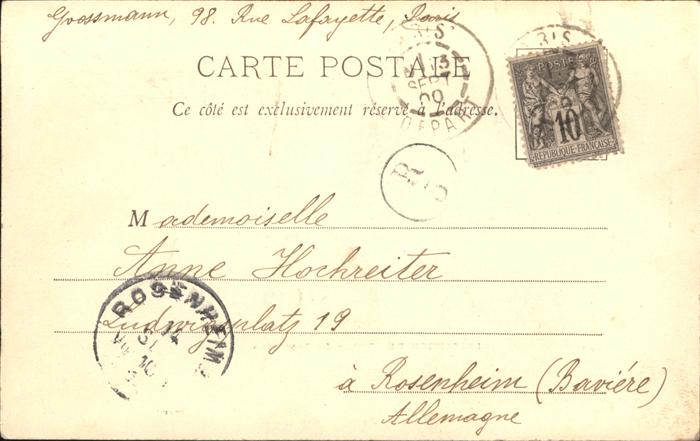 Grossmann, 98. Rue Lafayette, Paris
CARTE POSTALE
Ce côté est exclusivement réservé à l'adresse.
SEPT
DEPART
POSTE
10
REPUBLIQUE FRANÇAISE
R
Mademoiselle
Anne Hochreiter
Ludwigsplatz 19
à Rosenheim (Baviére)
Allemagne
ROSENHEIM